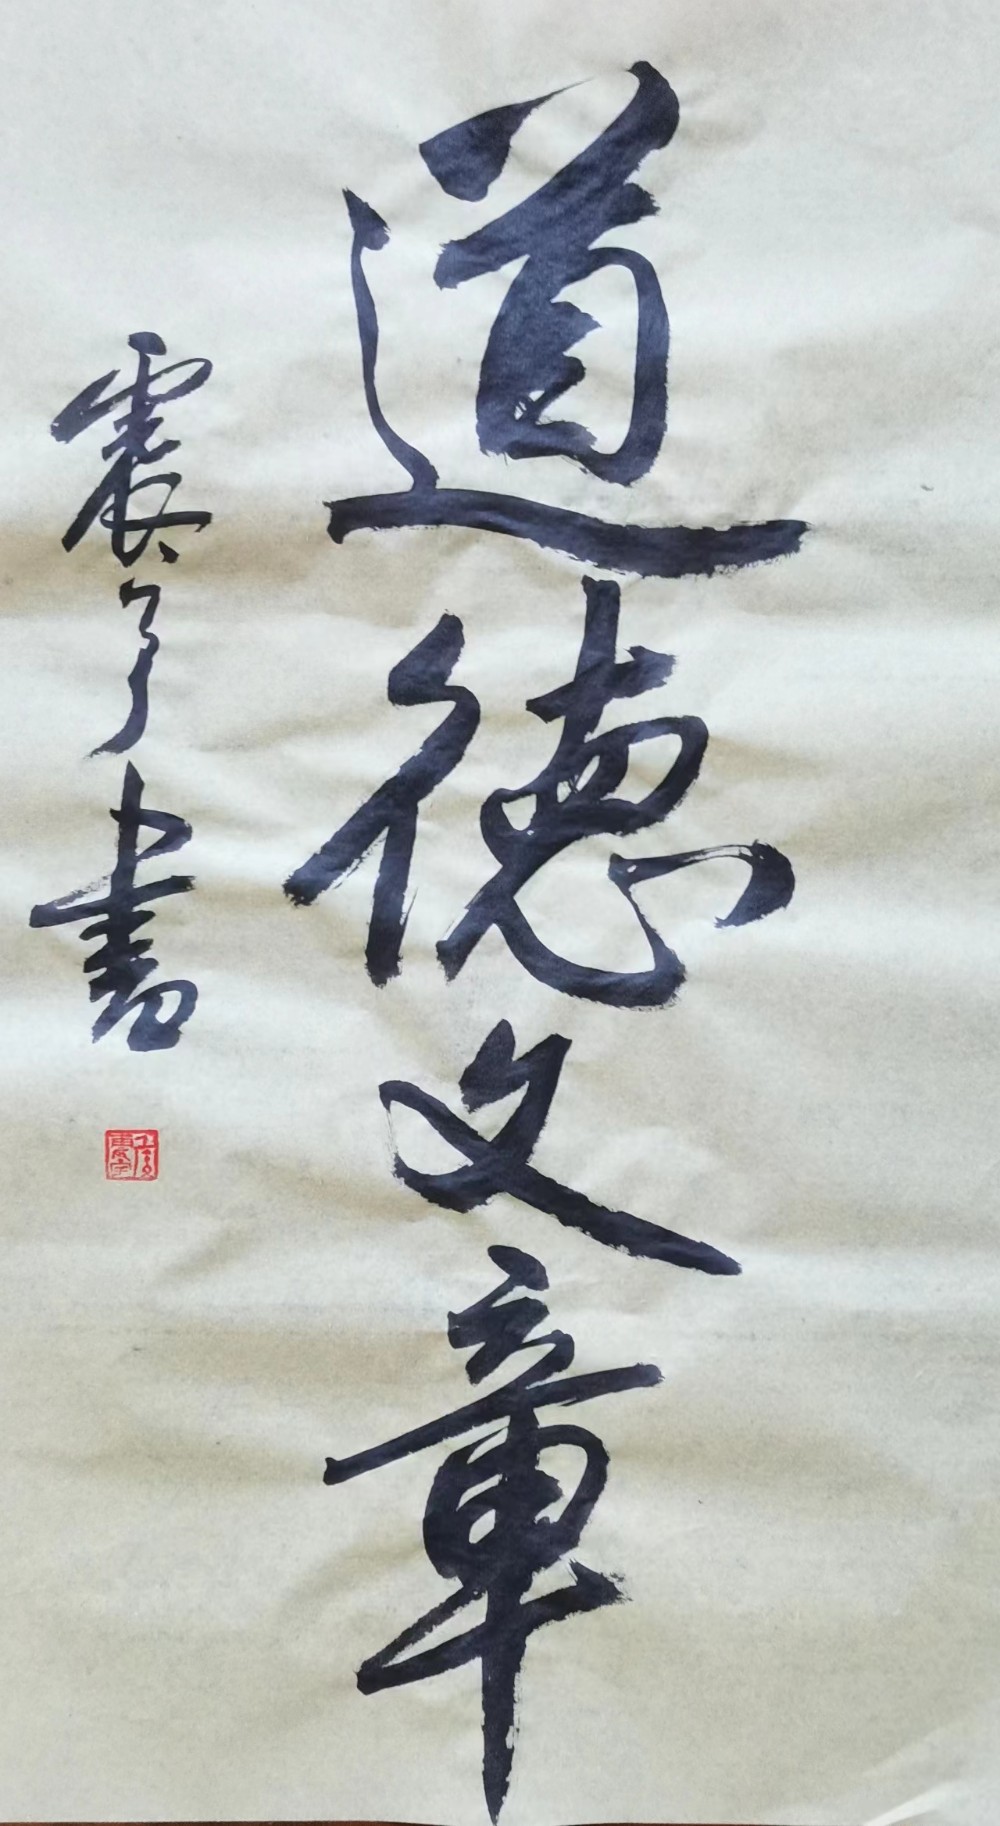 道德文章
震 書